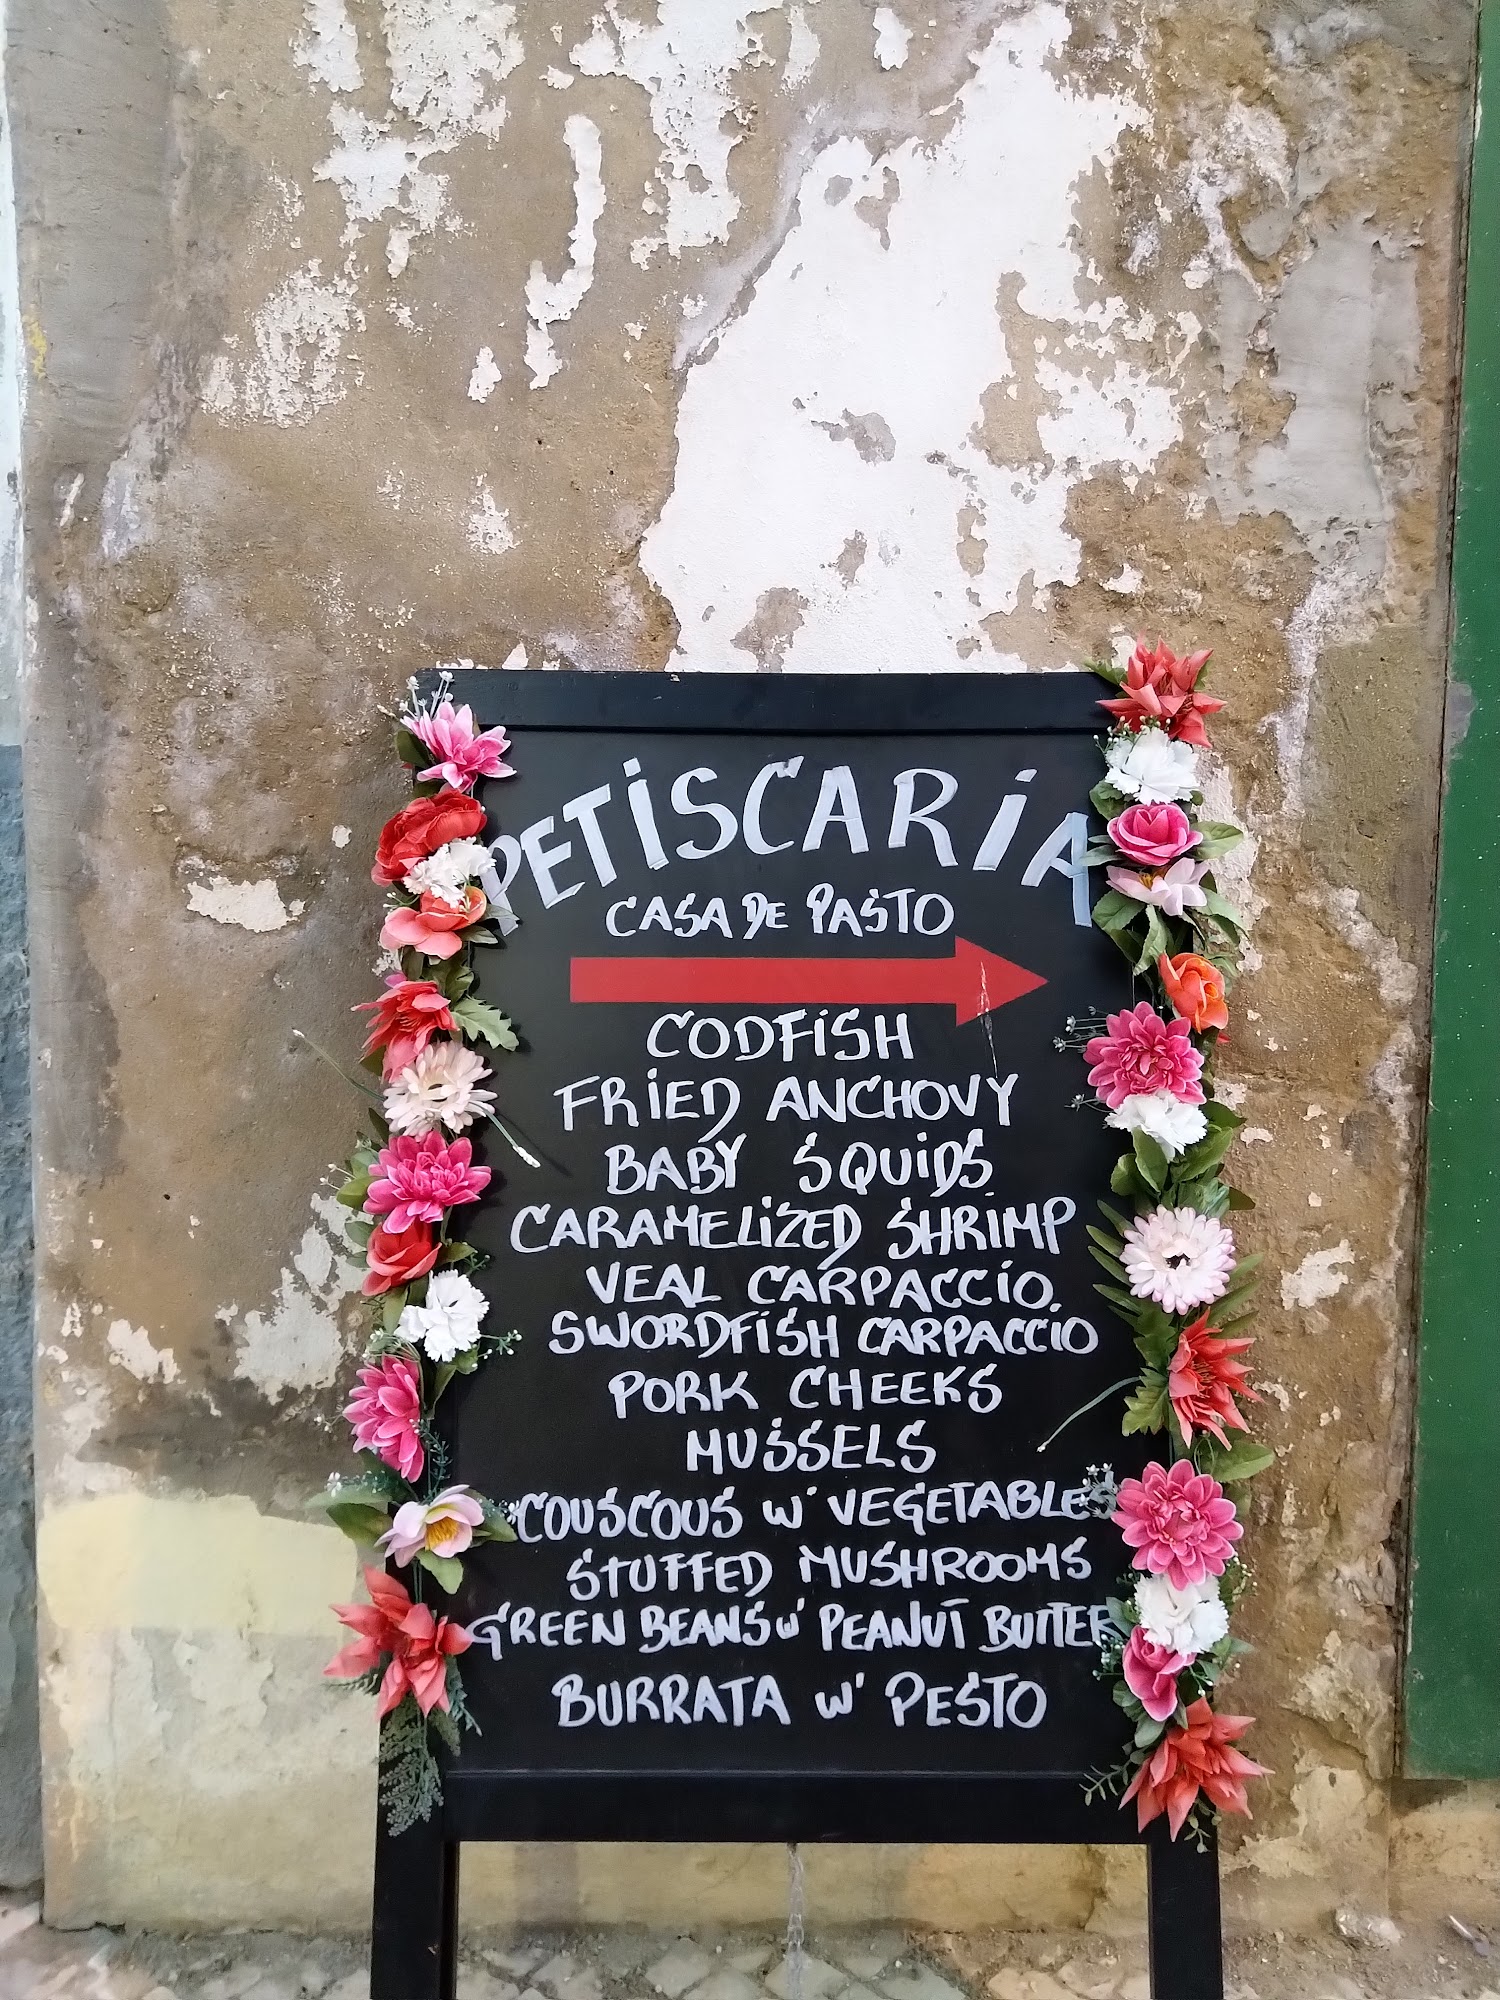 PETISCARIA
CASA DE PASTO
CODFISH
FRIED ANCHOVY
BABY SQUIDS
CARAMELIZED SHRIMP
VEAL CARPACCIO
SWORDFISH CARPACCIO
PORK CHEEKS
MUSSELS
COUSCOUS W' VEGETABLES
STUFFED MUSHROOMS
GREEN BEANS W' PEANUT BUTTER
BURRATA W' PESTO